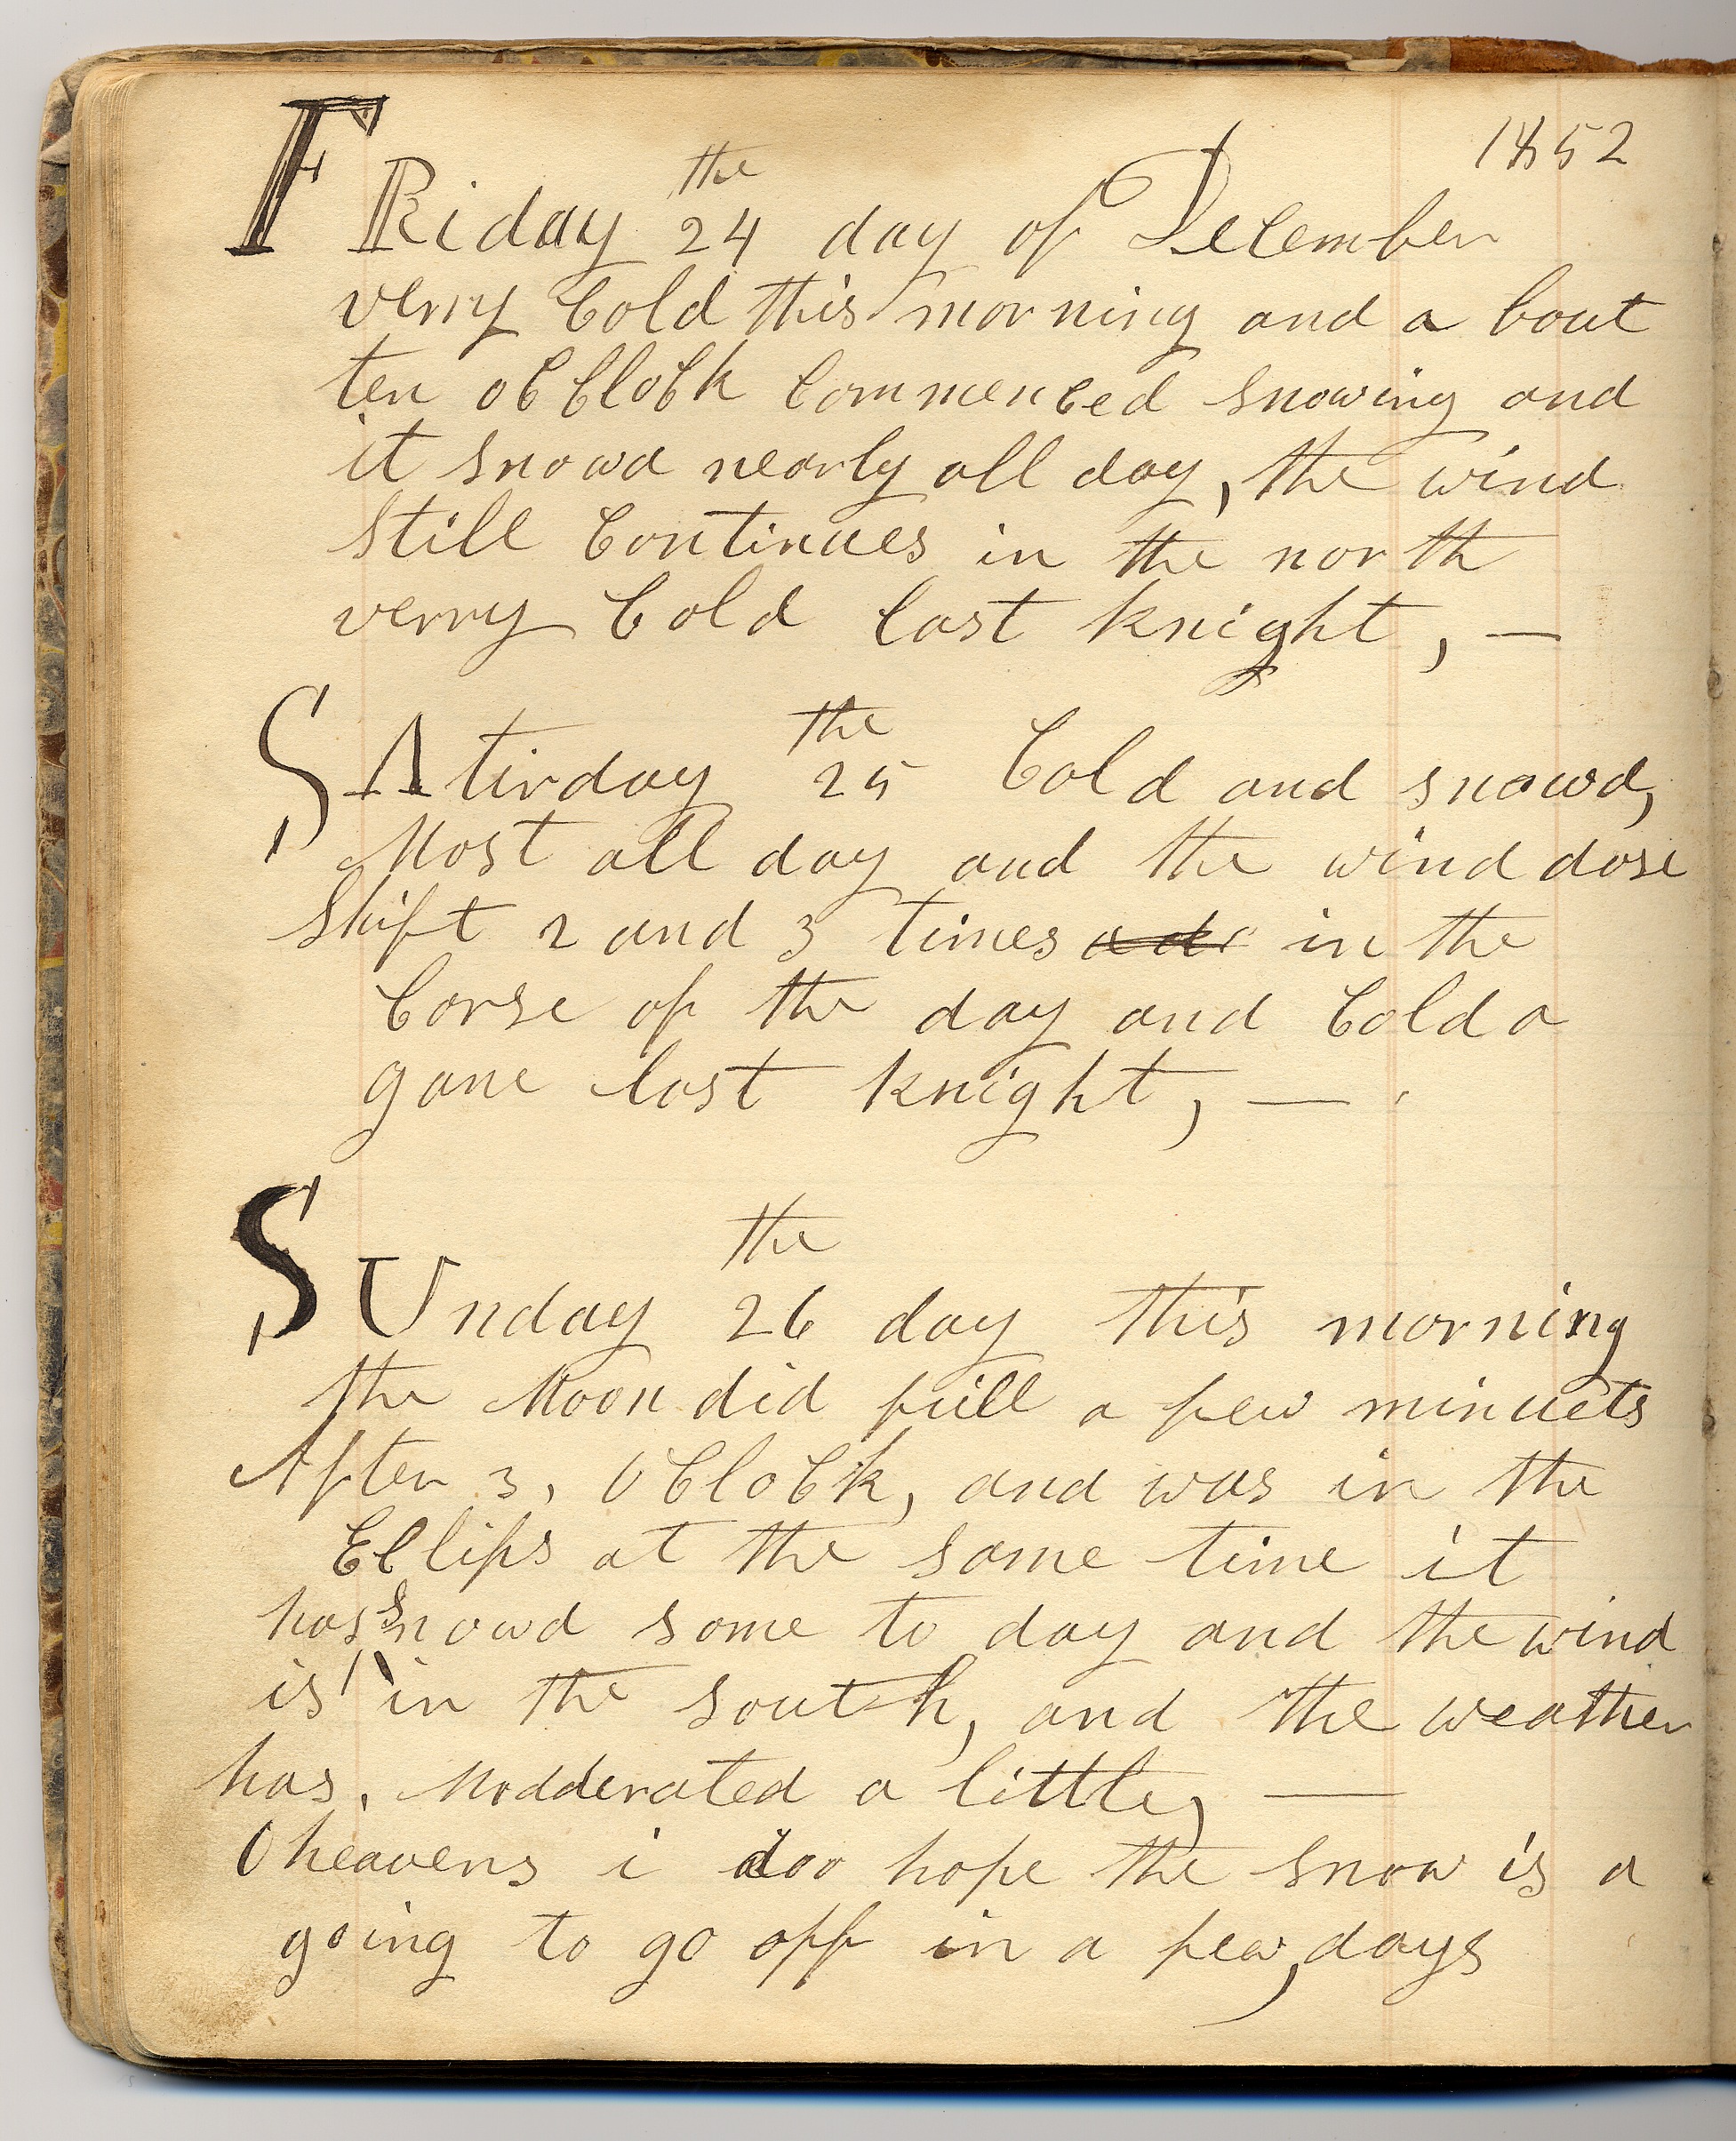 1852
FRiday the 24 day of December
verry Cold this morning and a bout
ten oCCloCk Commenced snowing and
it snowd nearly all day, the wind
still Continues in the north
verry Cold last knight, —
SAtirday the 25 Cold and snowd,
Most all day and the wind dose
shift 2 and 3 times in the
Corse of the day and Cold a
gane last knight, —
SUnday the 26 day this morning
the Moon did full a few minuets
After 3, OCloCk, and was in the
Eclips at the same time it
has snowd some to day and the wind
is in the south, and the weather
has, Modderated a little, —
O heavens i doo hope the snow is a
going to go off in a few, days